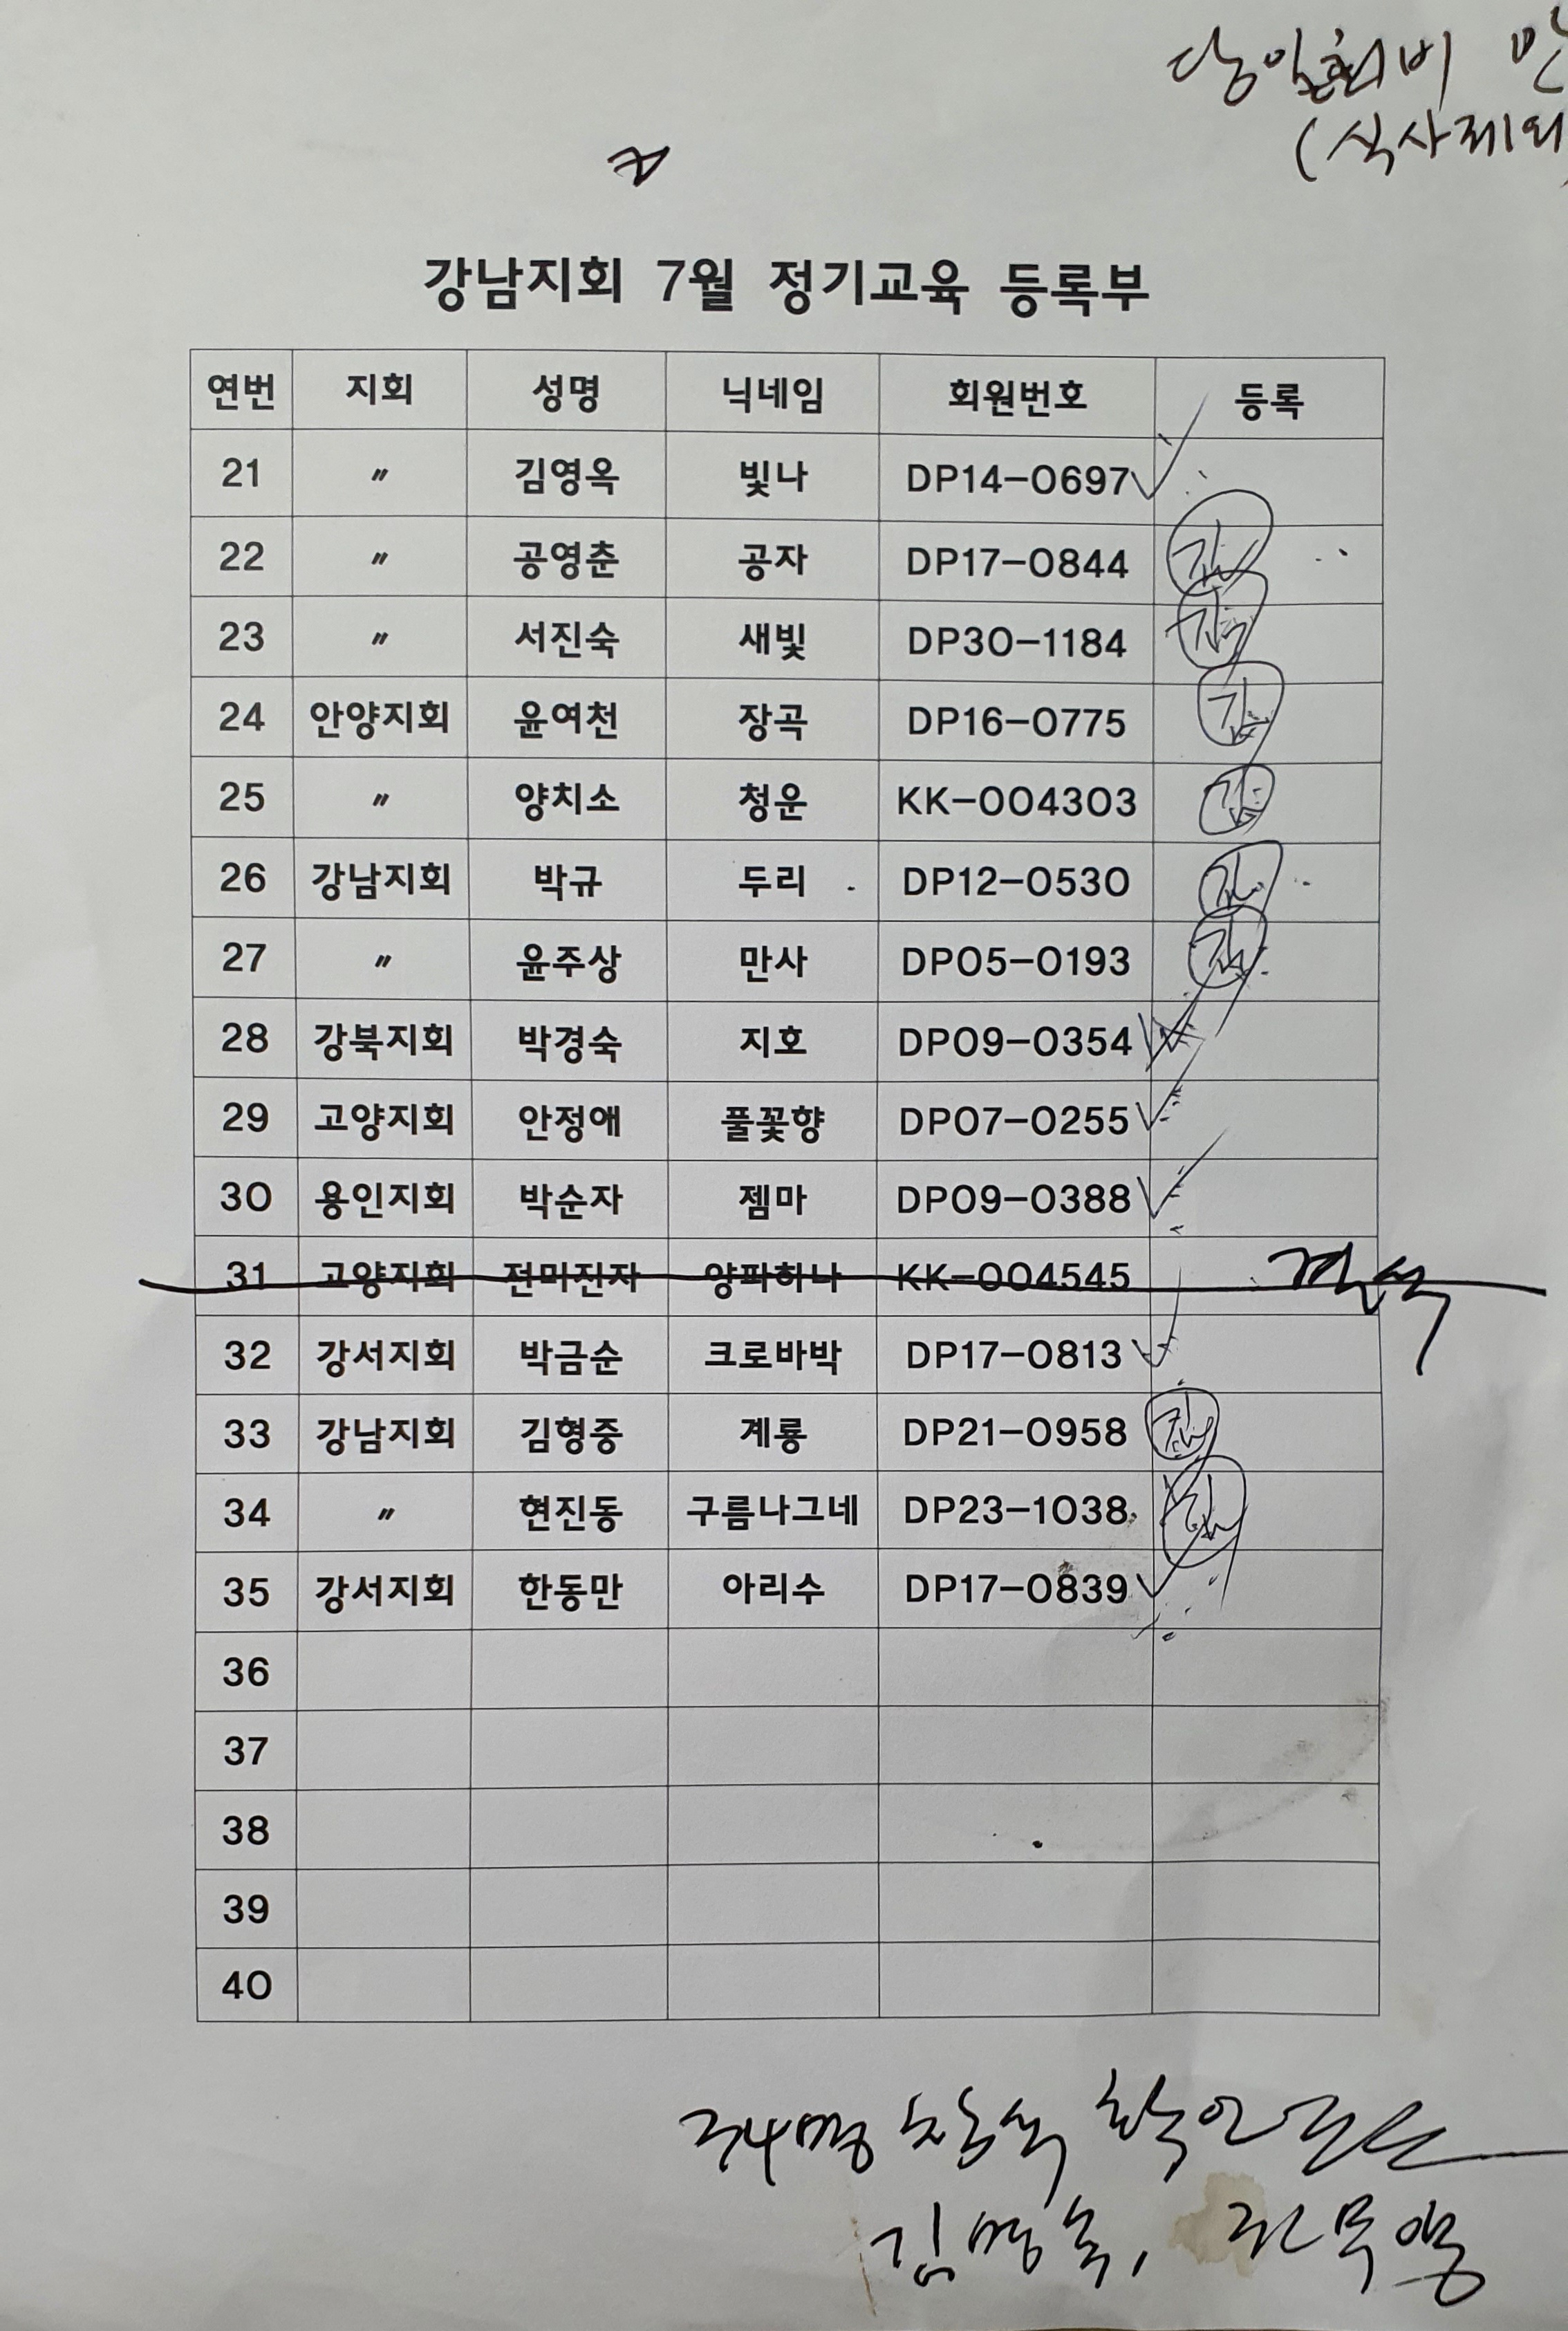 당일회비 만
(식사제외)
강남지회 7월 정기교육 등록부
연번 지회 성명 닉네임 회원번호 등록
21 〃 김영옥 빛나 DP14-0697
22 〃 공영춘 공자 DP17-0844
23 〃 서진숙 새빛 DP30-1184
24 안양지회 윤여천 장곡 DP16-0775
25 〃 양치소 청운 KK-004303
26 강남지회 박규 두리 DP12-0530
27 〃 윤주상 만사 DP05-0193
28 강북지회 박경숙 지호 DP09-0354
29 고양지회 안정애 풀꽃향 DP07-0255
30 용인지회 박순자 젬마 DP09-0388
31 고양지회 전미진자 양파하나 KK-004545
32 강서지회 박금순 크로바박 DP17-0813
33 강남지회 김형중 계룡 DP21-0958
34 〃 현진동 구름나그네 DP23-1038
35 강서지회 한동만 아리수 DP17-0839
36
37
38
39
40
34명 참석 확인
김영옥,